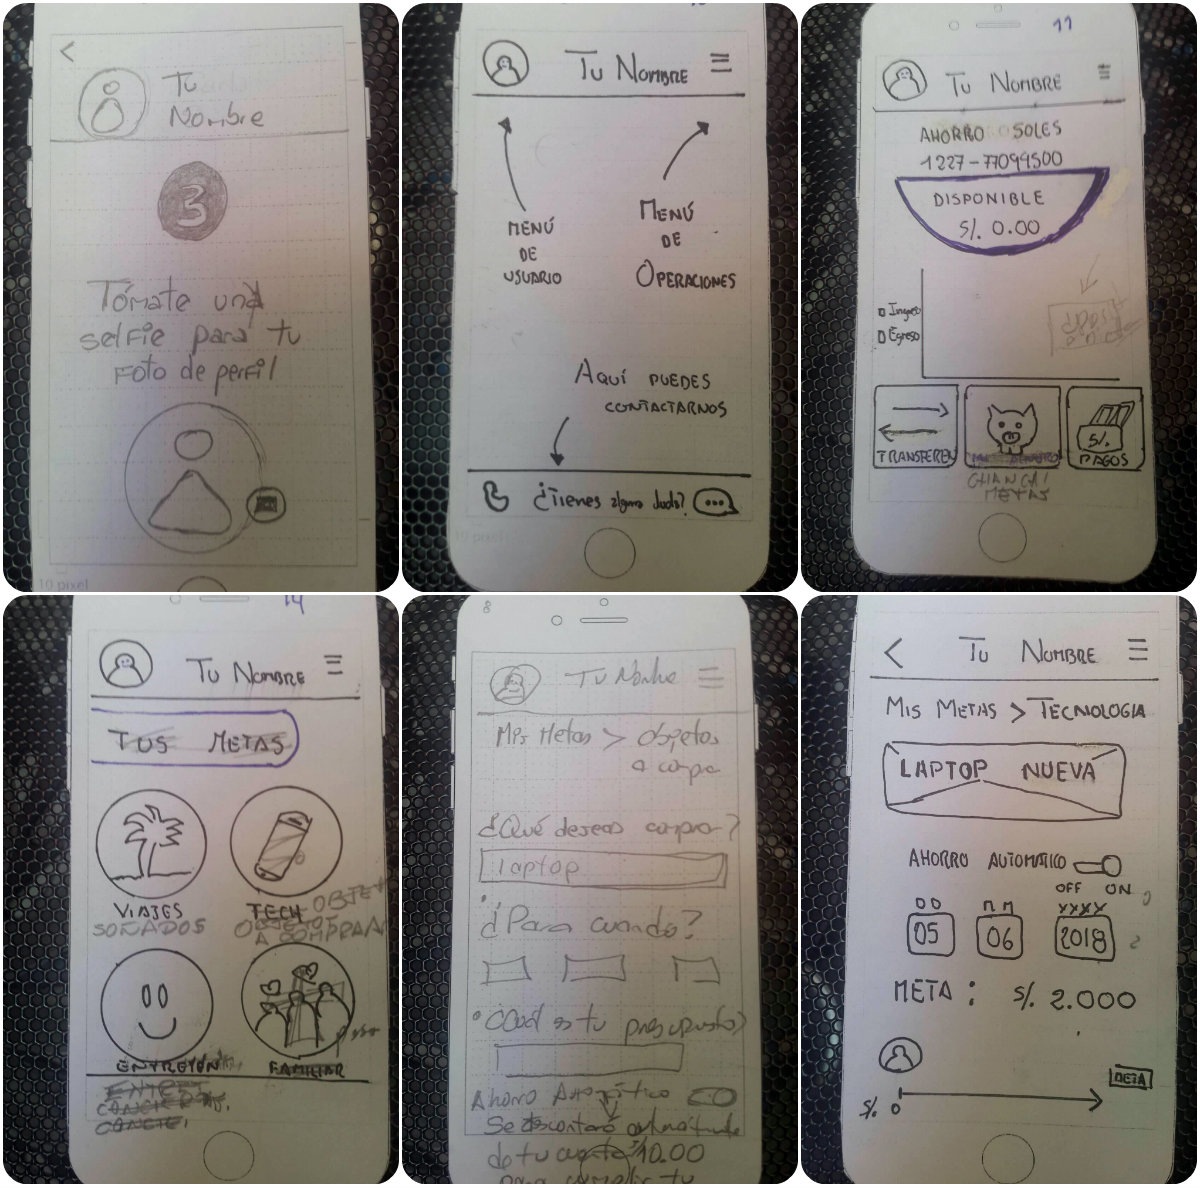 Tu
Nombre
3
Tómate una
selfie para tu
Foto de perfil
10 pixel
Tu Nombre
MENÚ
DE
USUARIO
MENÚ
DE
OPERACIONES
AQUÍ PUEDES
CONTACTARNOS
¿Tienes alguna duda?
11
Tu NOMBRE
AHORRO SOLES
1227-77099500
DISPONIBLE
S/. 0.00
Ingreso
Egreso
TRANSFEREN
S/.
PAGOS
CHANCA!
METAS
14
Tu NOMBRE
TUS METAS
VIAJES
SOÑADOS
TECH
OBJETOS
A COMPRAR
FAMILIAR
8
Tu Nombre
Mis Metas > Objetos
a compra
¿Qué deseas comprar?
laptop
¿Para cuando?
¿Cuál es tu presupuesto?
Ahorro Automático
Se descontará
de tu cuenta S/10.00
para cumplir tu
Tu NOMBRE
MIS METAS > TECNOLOGIA
LAPTOP NUEVA
AHORRO AUTOMATICO
OFF ON
DD MM XXXX
05 06 2018
META: S/. 2.000
META
S/. 0